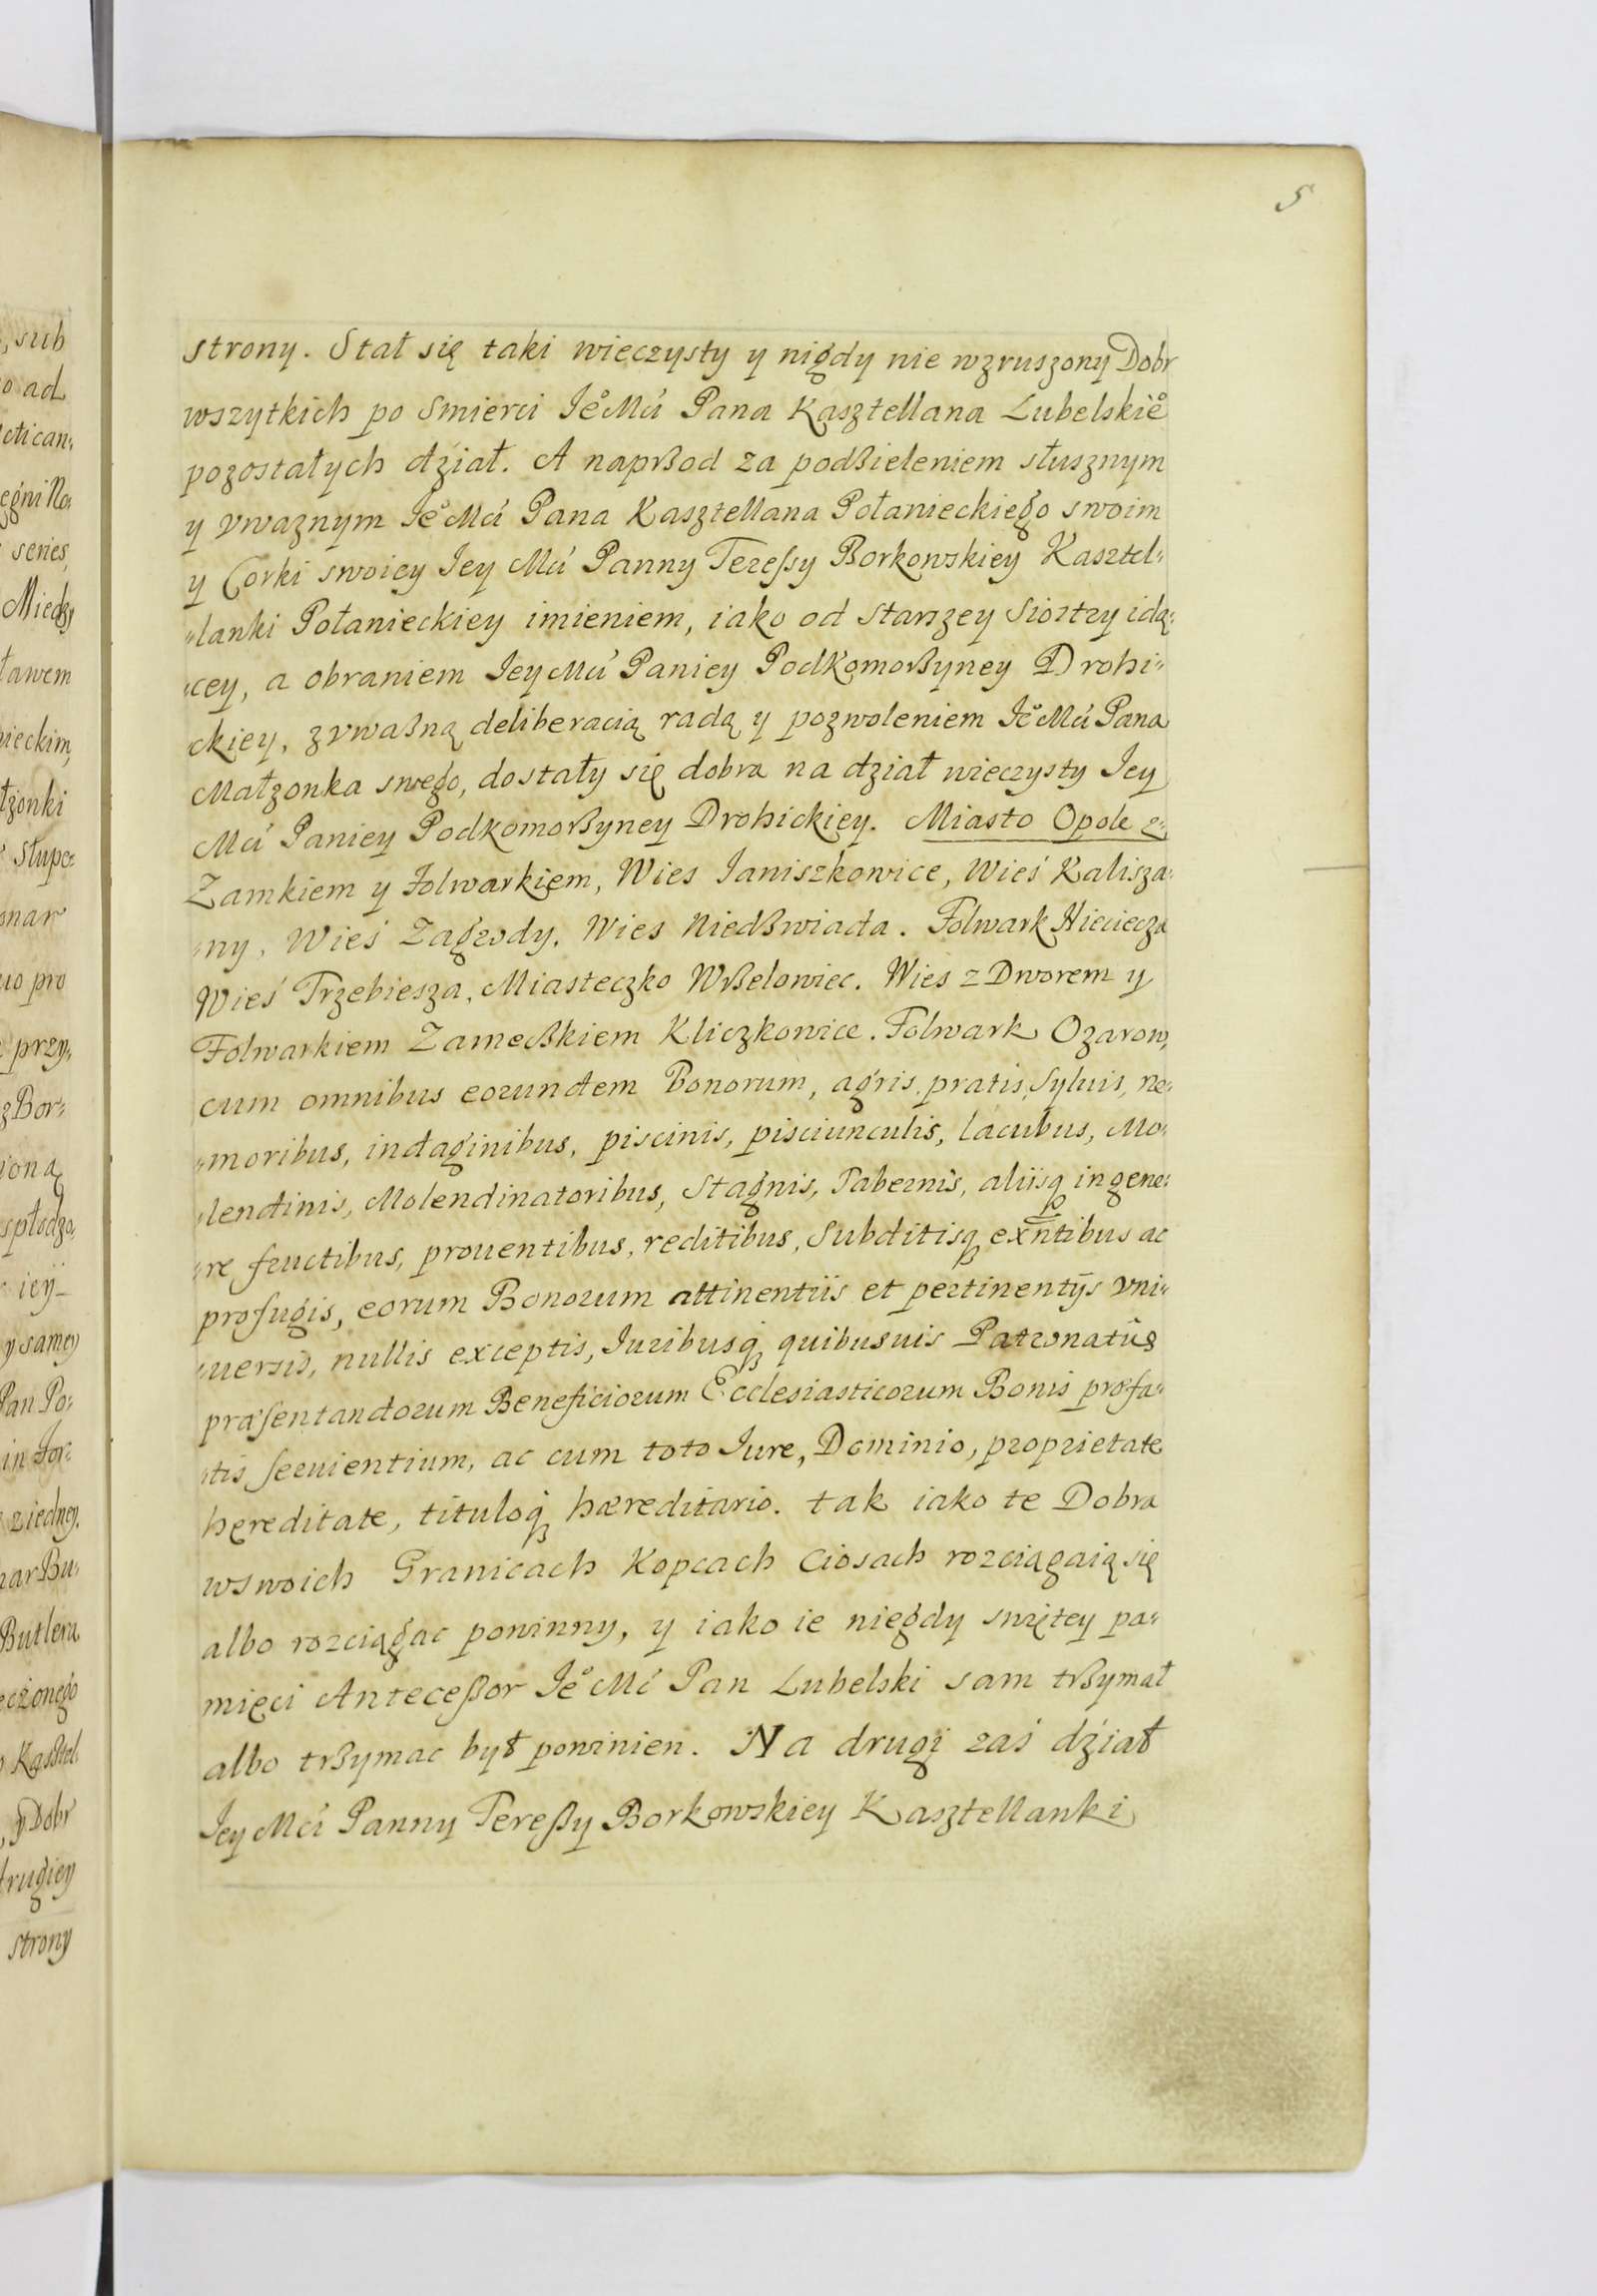 5
strony. Stał się taki wieczysty y nigdy nie wzruszony Dobr
wszytkich po Smierci Ie° Mći Pana Kasztellana Lubelskie°
pozostałych dźiał. A naprßod za podßieleniem słusznym
y vwaznym Ie° Mći Pana Kasztellana Połanieckiego swoim
y Corki swoiey Iey Mći Panny Teressy Borkowskiey Kasztel-
lanki Połanieckiey imieniem, iako od starszey Siostry idą-
cey, a obraniem Iey Mći Paniey Podkomorßyney Drohi-
ckiey, z vwaßną deliberacią radą y pozwoleniem Ie° Mći Pana
Małzonka swego, dostały się dobra na dział wieczysty Iey
Mći Paniey Podkomorßyney Drohickiey. Miasto Opole z
Zamkiem y Folwarkiem, Wies Ianiszkowice, Wieś Kalisza-
ny, Wieś Zagrody, Wies Niedßwiada. Folwark Nieciecza
Wieś Trzebiesza, Miasteczko Wrßelowiec. Wies z Dworem y
Folwarkiem Zameckiem Kliczkowice. Folwark Ozarow,
cum omnibus eorundem Bonorum, agris, pratis, Syluis, ne-
moribus, indaginibus, piscinis, pisciunculis, lacubus, Mo-
lendinis, Molendinatoribus, Stagnis, Tabernis, aliisq in gene-
re fructibus, prouentibus, reditibus, Subditisq exñtibus ac
profugis, eorum Bonorum attinentiis et pertinentijs vni-
uersis, nullis exceptis, Iuribusq quibusuis Patronatûs
præsentandorum Beneficiorum Ecclesiasticorum Bonis præfa-
tis seruientium, ac cum toto Iure, Dominio, proprietate
hęreditate, tituloq hæreditario. tak iako te Dobra
w swoich Granicach Kopcach Ciosach rozciągaią się
albo rozciągac powinny, y iako ie niegdy swiętey pa-
mięci Anteceßor Ie° Mć Pan Lubelski sam trßymał
albo trßymac był powinien. Na drugi zaś dźiał
Iey Mći Panny Tereßy Borkowskiey Kasztellanki
, sub
o ad
cti can-
egni No-
series
Miedzy
ławem
nieckim,
łżonki
Słupe-
onar
uo pro
przy-
z Bor-
ioną
spłodzo-
iey
y samey
Pan Po-
in For-
ziedney
nar Bu-
Butlera
eczonego
Kasztel-
, y Dobr
drugiey
strony